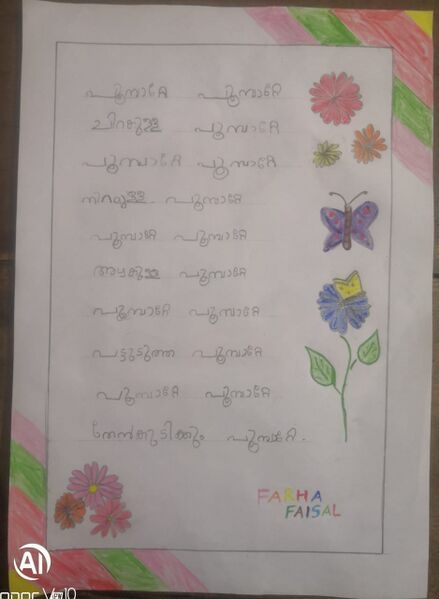 പൂമ്പാറ്റേ പൂമ്പാറ്റേ
ചിറകുള്ള പൂമ്പാറ്റേ
പൂമ്പാറ്റേ പൂമ്പാറ്റേ
നിറമുള്ള പൂമ്പാറ്റേ
പൂമ്പാറ്റേ പൂമ്പാറ്റേ
അഴകുള്ള പൂമ്പാറ്റേ
പൂമ്പാറ്റേ പൂമ്പാറ്റേ
പട്ടുടുത്ത പൂമ്പാറ്റേ
പൂമ്പാറ്റേ പൂമ്പാറ്റേ
തേൻകുടിക്കും പൂമ്പാറ്റേ.
FARHA
FAISAL
AI